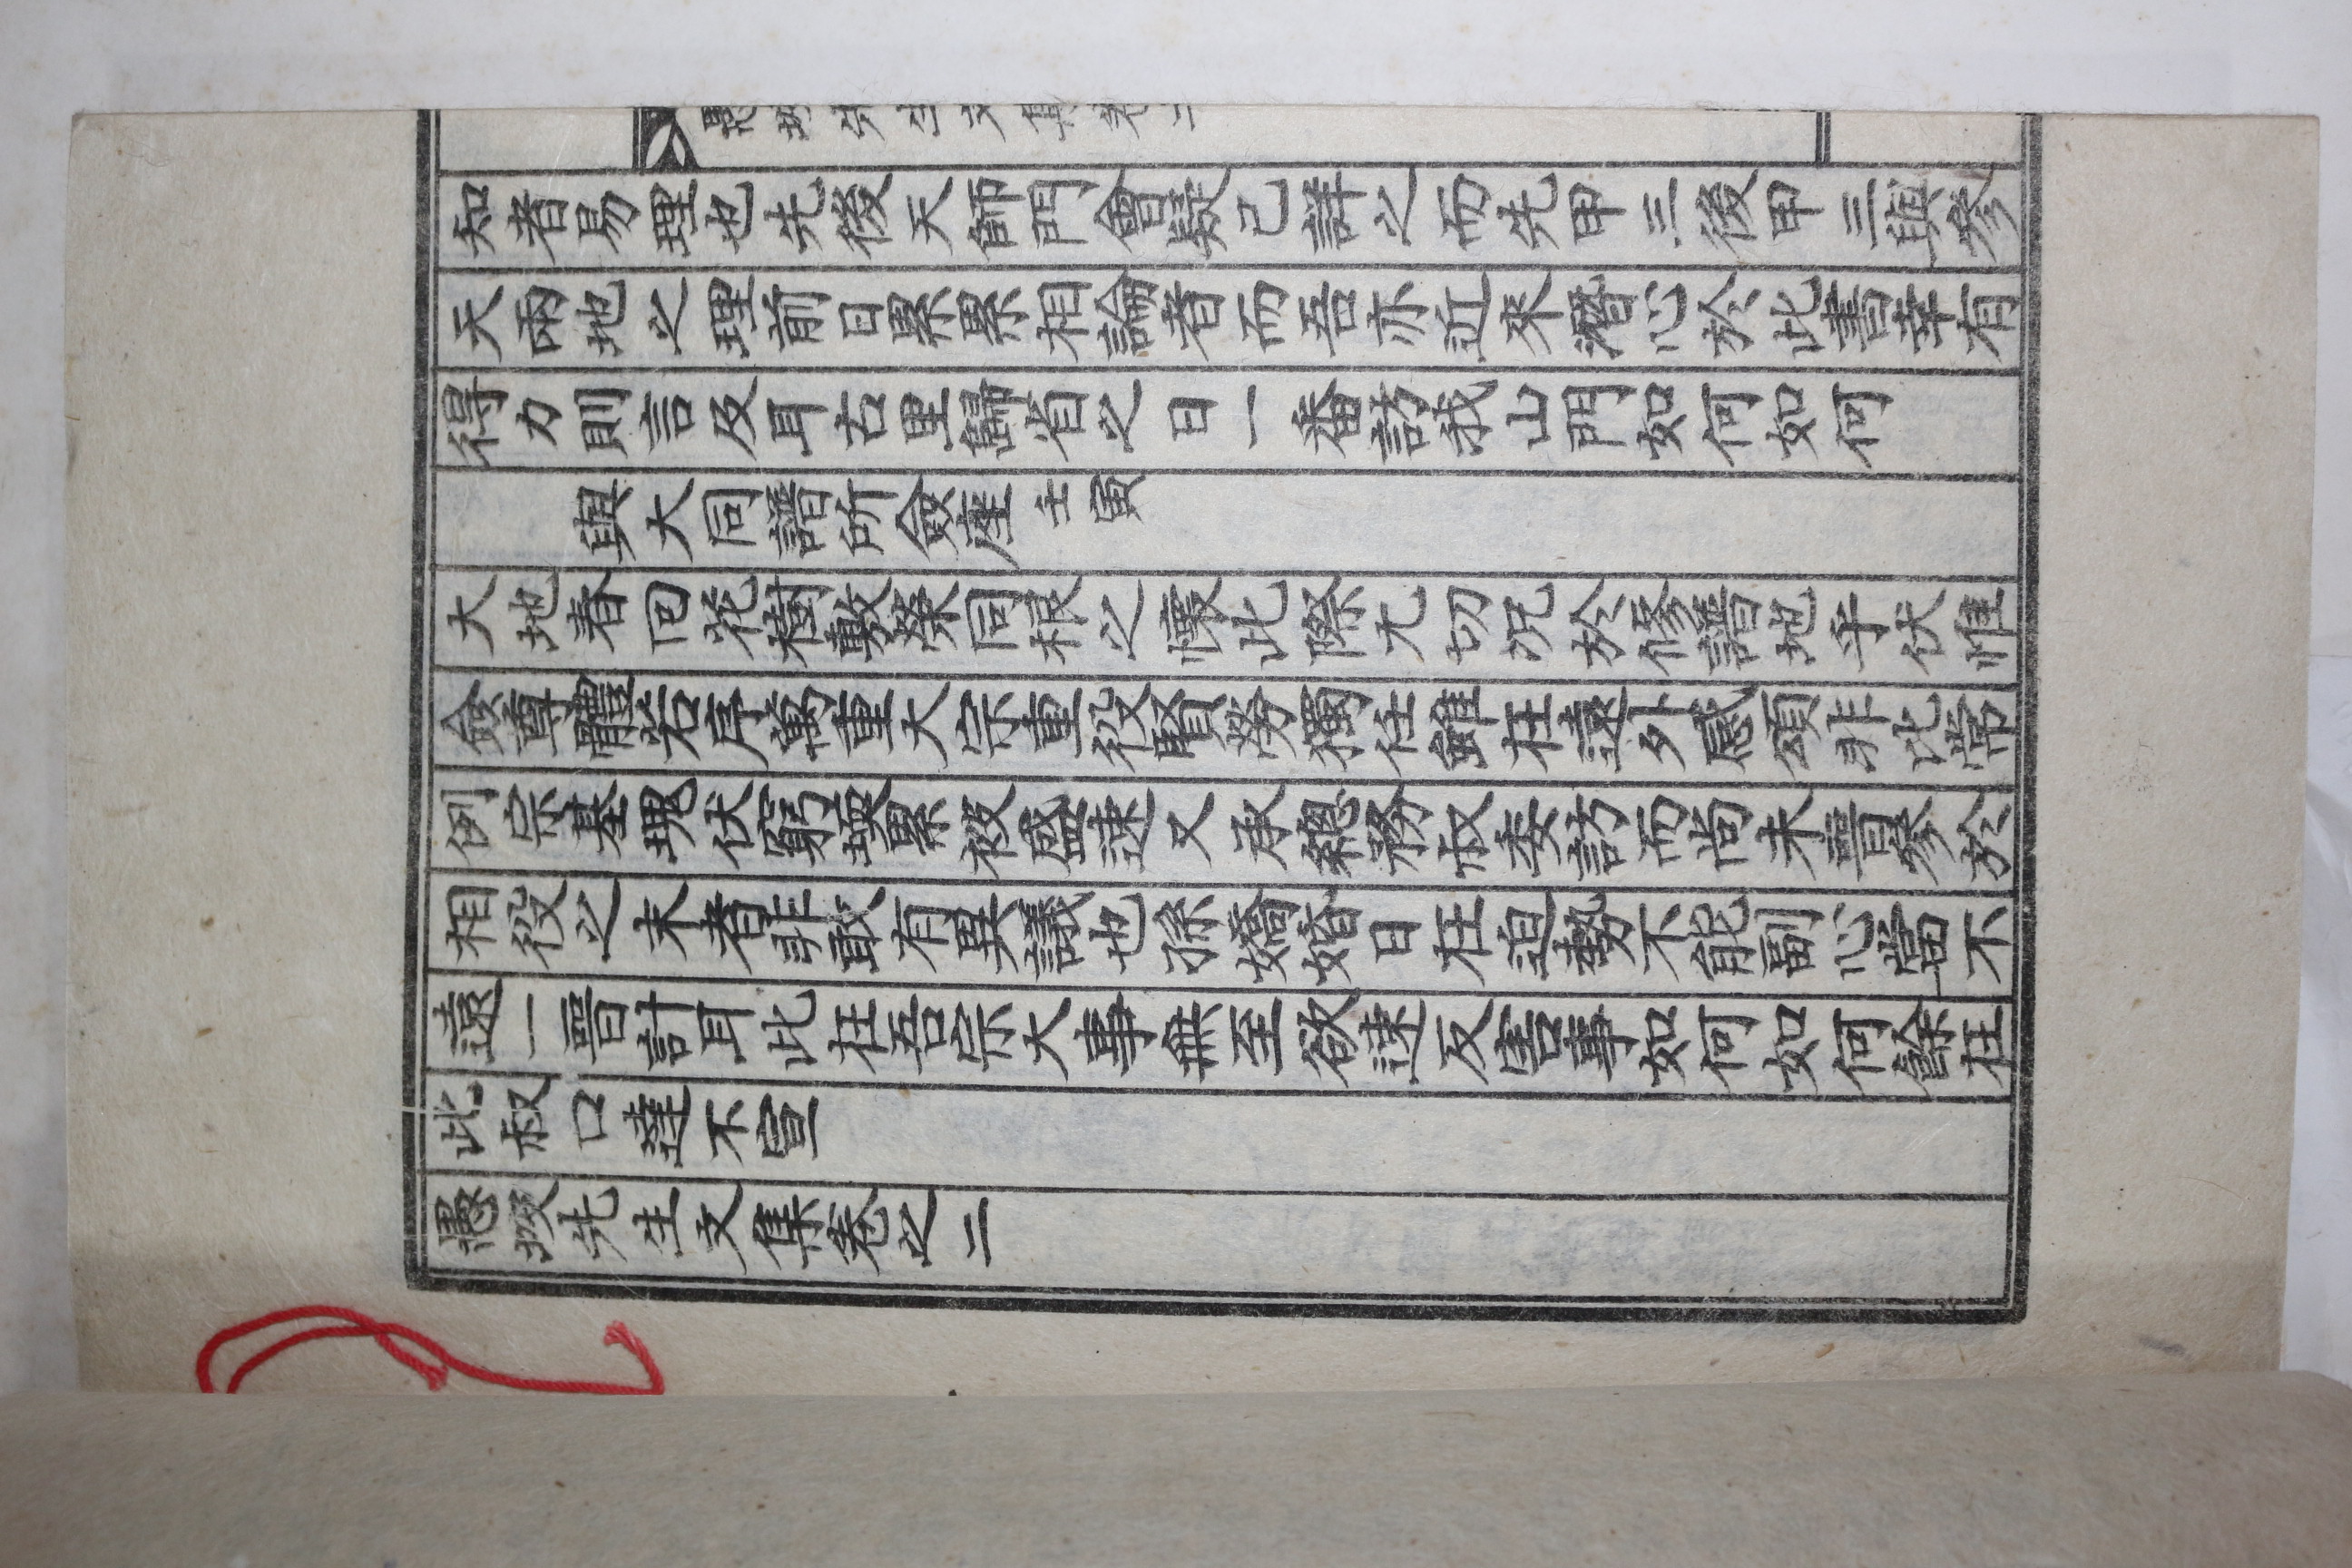 知者易理也先後天師門會發已詳之而先甲三後甲三與參
天兩地之理前日累累相論者而吾亦近來潛心於此書幸有
得力則言及耳古里歸省之日一番訪我山門如何如何
與大同譜所僉座 壬寅
大地春回花樹敷榮同根之懷此際尤切況於修譜地乎伏惟
僉尊體若序萬重大宗重役賢勞獨任雖在遠外感頌非比常
例宗基現伏窮溪累被盛速又承總務叔委訪而尚未一晋參於
相役之末者非敢有異議也孫婚日在迫勢不能副心當不
遠一晋計耳此在吾宗大事無至欲速反害事如何如何餘在
此叔口達不宣
愚掇先生文集卷之二